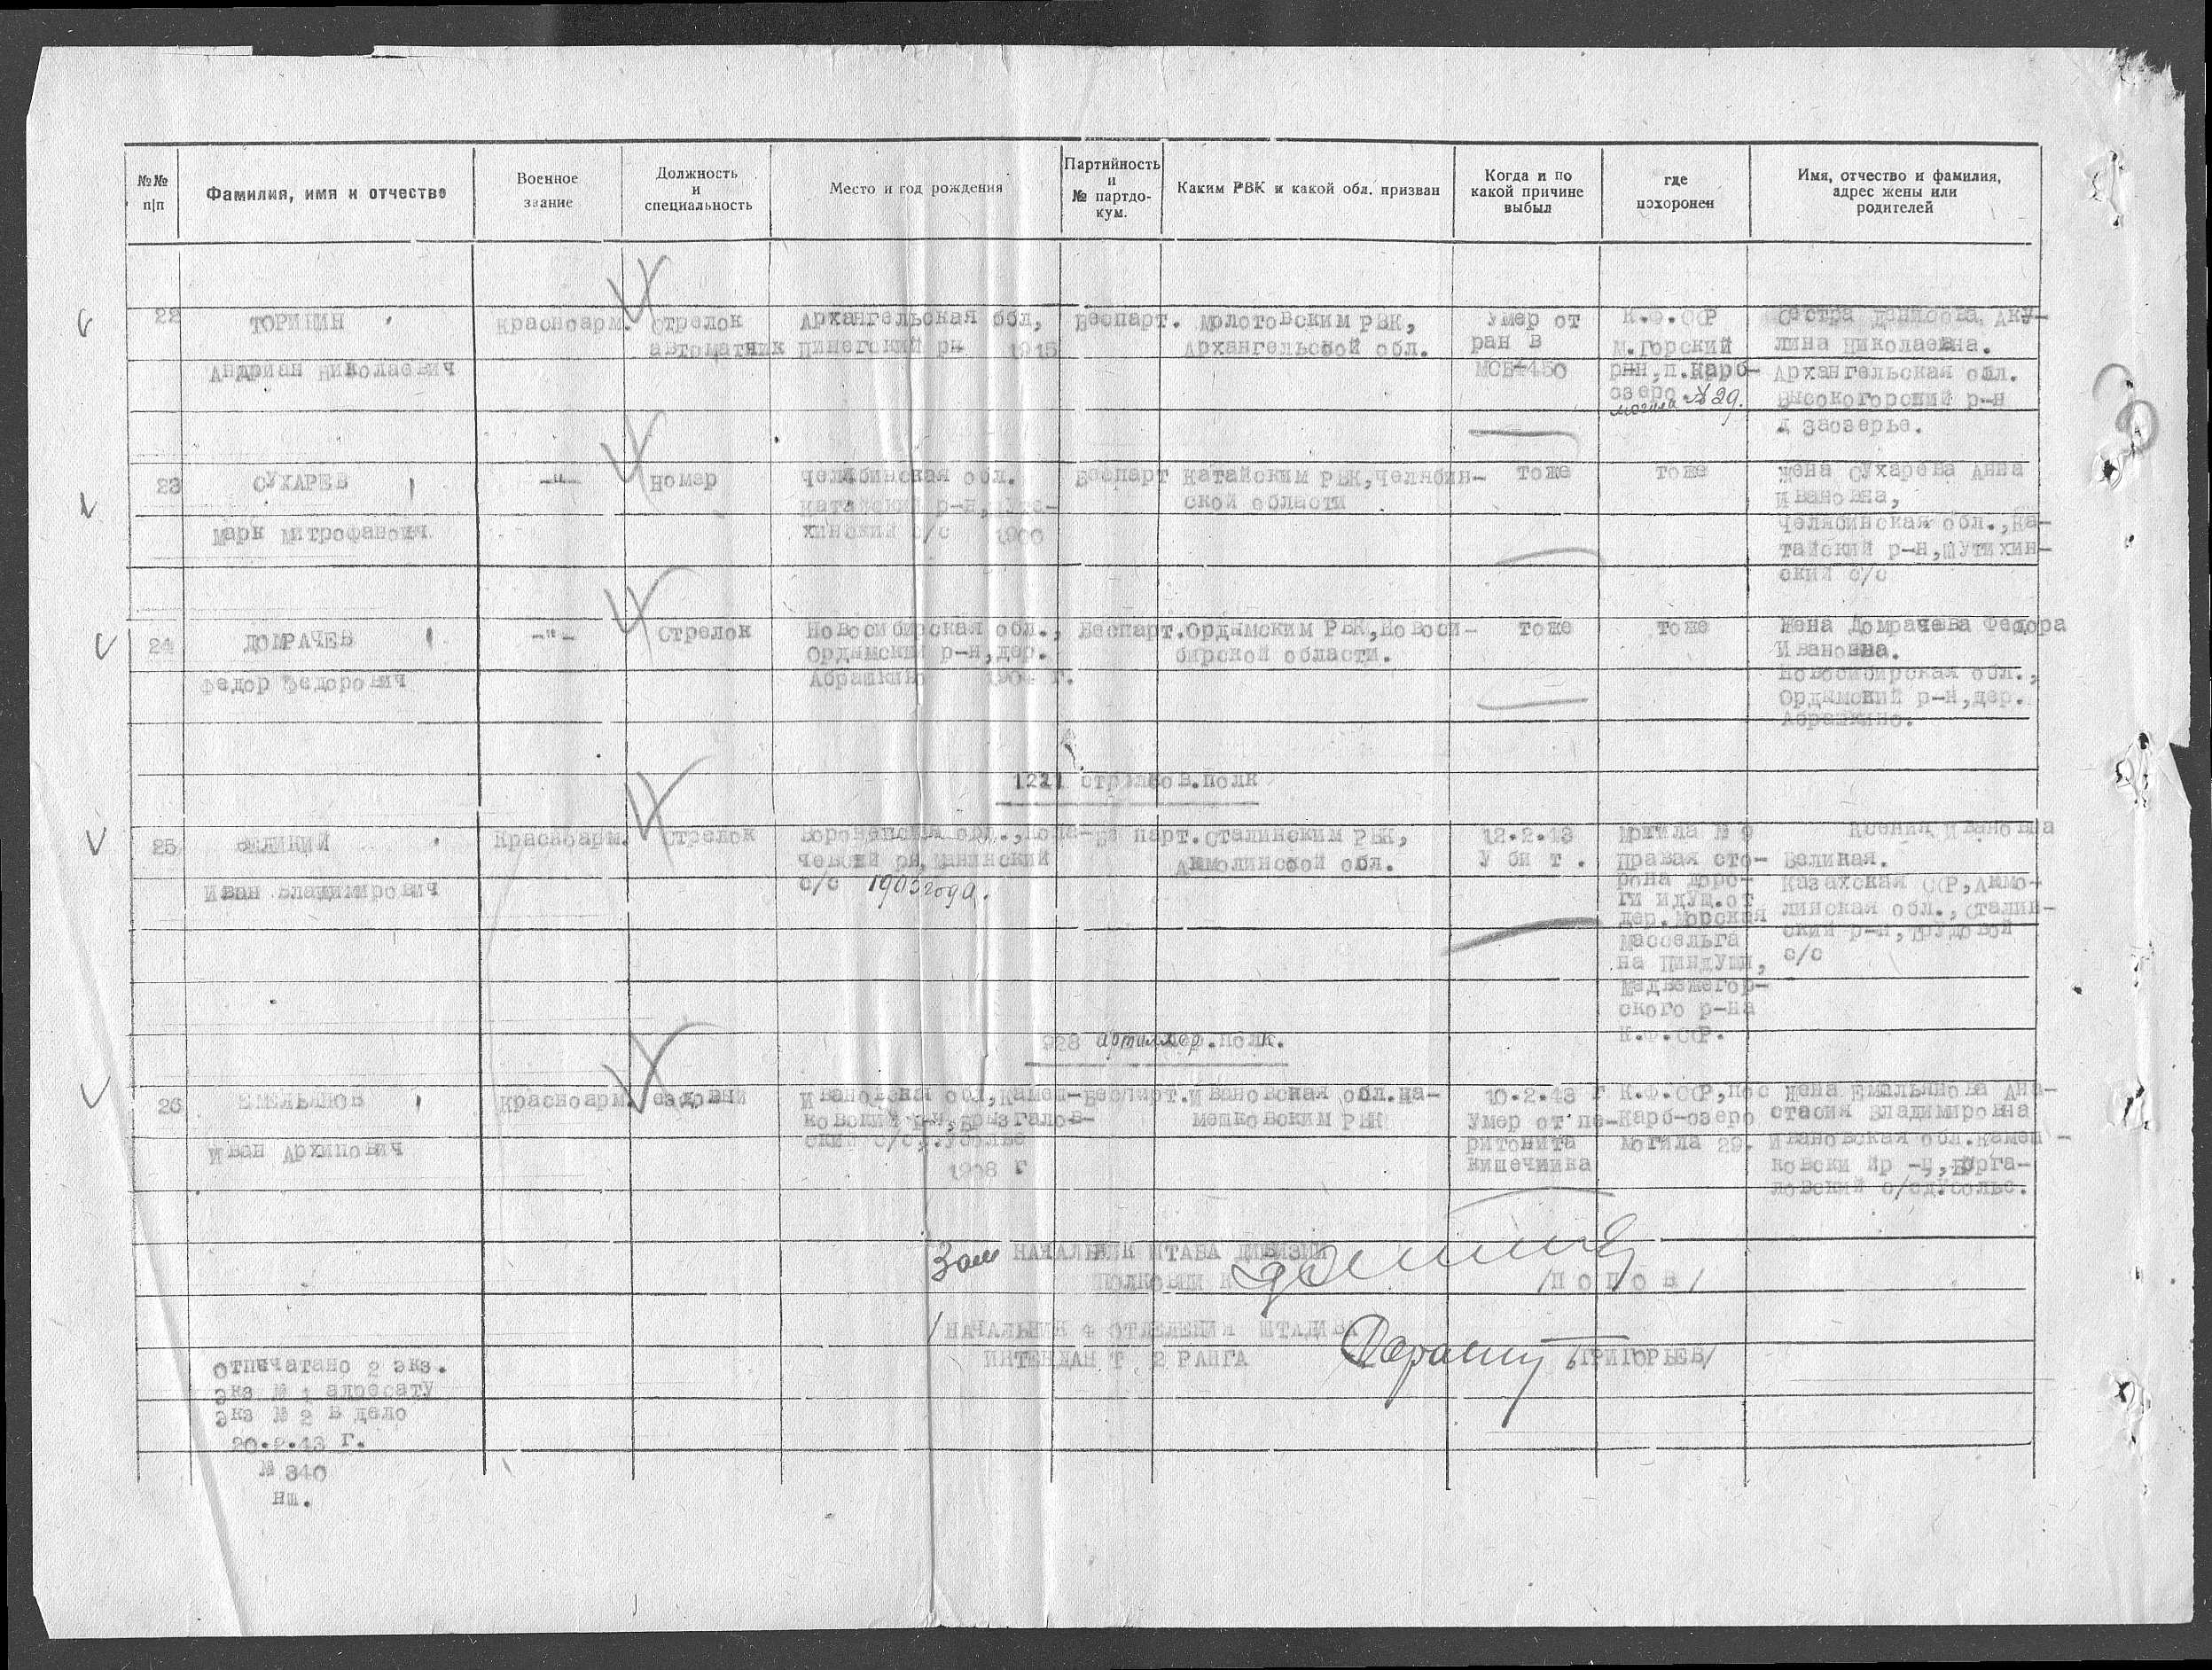 №№ п|п
Фамилия, имя и отчество
Военное звание
Должность и специальность
Место и год рождения
Партийность и № партдо-кум.
Каким РВК и какой обл. призван
Когда и по какой причине выбыл
где похоронен
Имя, отчество и фамилия, адрес жены или родителей
22
Андриан Николаевич
Красноарм.
Стрелок
автоматчик
Архангельская обл,
Пинегский рн 1915
Беспарт.
Молотовским РВК,
Архангельской обл.
Умер от
ран в
К.Ф.ССР
М.Горский
р-н, п. Карб-
озеро
могила № 29.
Сестра Денисова Аку-
лина Николаевна.
Архангельская обл.
р-н
д Заозерье.
23
СУХАРЕВ
Марк Митрофанович
-"-
Номер
Челябинская обл.
Катайский р-н,
хинский с/с 1900
Беспарт
Катайским РВК, Челябин-
ской области
тоже
тоже
Жена Сухарева Анна
Ивановна,
Челябинская обл., Ка-
тайский р-н, Шутихин-
ский с/с
24
ДОМРАЧЕВ
Федор Федорович
-"-
Стрелок
Новосибирская обл.,
Ордынский р-н, дер.
Беспарт.
Ордынским РВК, Новоси-
бирской области.
тоже
тоже
Жена Домрачева Федора
Ивановна.
Новосибирская обл.,
Ордынский р-н, дер.
Абрашкино.
1221 стрелков.полк
25
ВЕЛИКИЙ
Иван Владимирович
Красноарм.
Стрелок
Воронежская обл.,
с/с
года.
Сталинским РВК,
Акмолинской обл.
12.2.43
У б и т .
Могила №
Правая сто-
рона доро-
ги идущ. от
дер. Морская
Массельга
на Пиндуши,
Медвежегор-
ского р-на
К.Ф.ССР.
Ксения Ивановна
Великая.
Казахская ССР, Акмо-
линская обл., Сталин-
ский р-н, Трудовой
с/с
928 артиллер.полк.
26
ЕМЕЛЬЯНОВ
Иван Архипович
Красноарм.
ездовый
Ивановская обл, Камеш-
ковский р-н,
1908 г
Беспарт.
Ивановская обл. Ка-
мешковским РВК
10.2.43 г
Умер от пе-
ритонита
кишечника
К.Ф.ССР, пос
Карб-озеро
могила 29.
Жена Емельянова Ана-
стасия Владимировна
Ивановская обл. Камеш-
Зам НАЧАЛЬНИК ШТАБА ДИВИЗИИ
ПОЛКОВНИК
/П О П О В/
/НАЧАЛЬНИК 4 ОТДЕЛЕНИЯ ШТАДИВА
ИНТЕНДАНТ 2 РАНГА
/ГРИГОРЬЕВ/
отпечатано 2 экз.
экз № 1 адресату
экз № 2 в дело
20.2.43 г.
№ 340
нш.